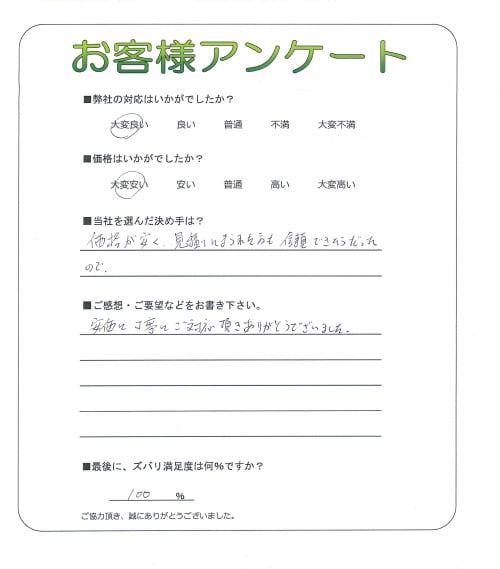 お客様アンケート
■弊社の対応はいかがでしたか？
大変良い 良い 普通 不満 大変不満
■価格はいかがでしたか？
大変安い 安い 普通 高い 大変高い
■当社を選んだ決め手は？
価格が安く、見積にこられた方も信頼できそうだった
ので。
■ご感想・ご要望などをお書き下さい。
安価に丁寧にご対応頂きありがとうございました。
■最後に、ズバリ満足度は何％ですか？
100 ％
ご協力頂き、誠にありがとうございました。